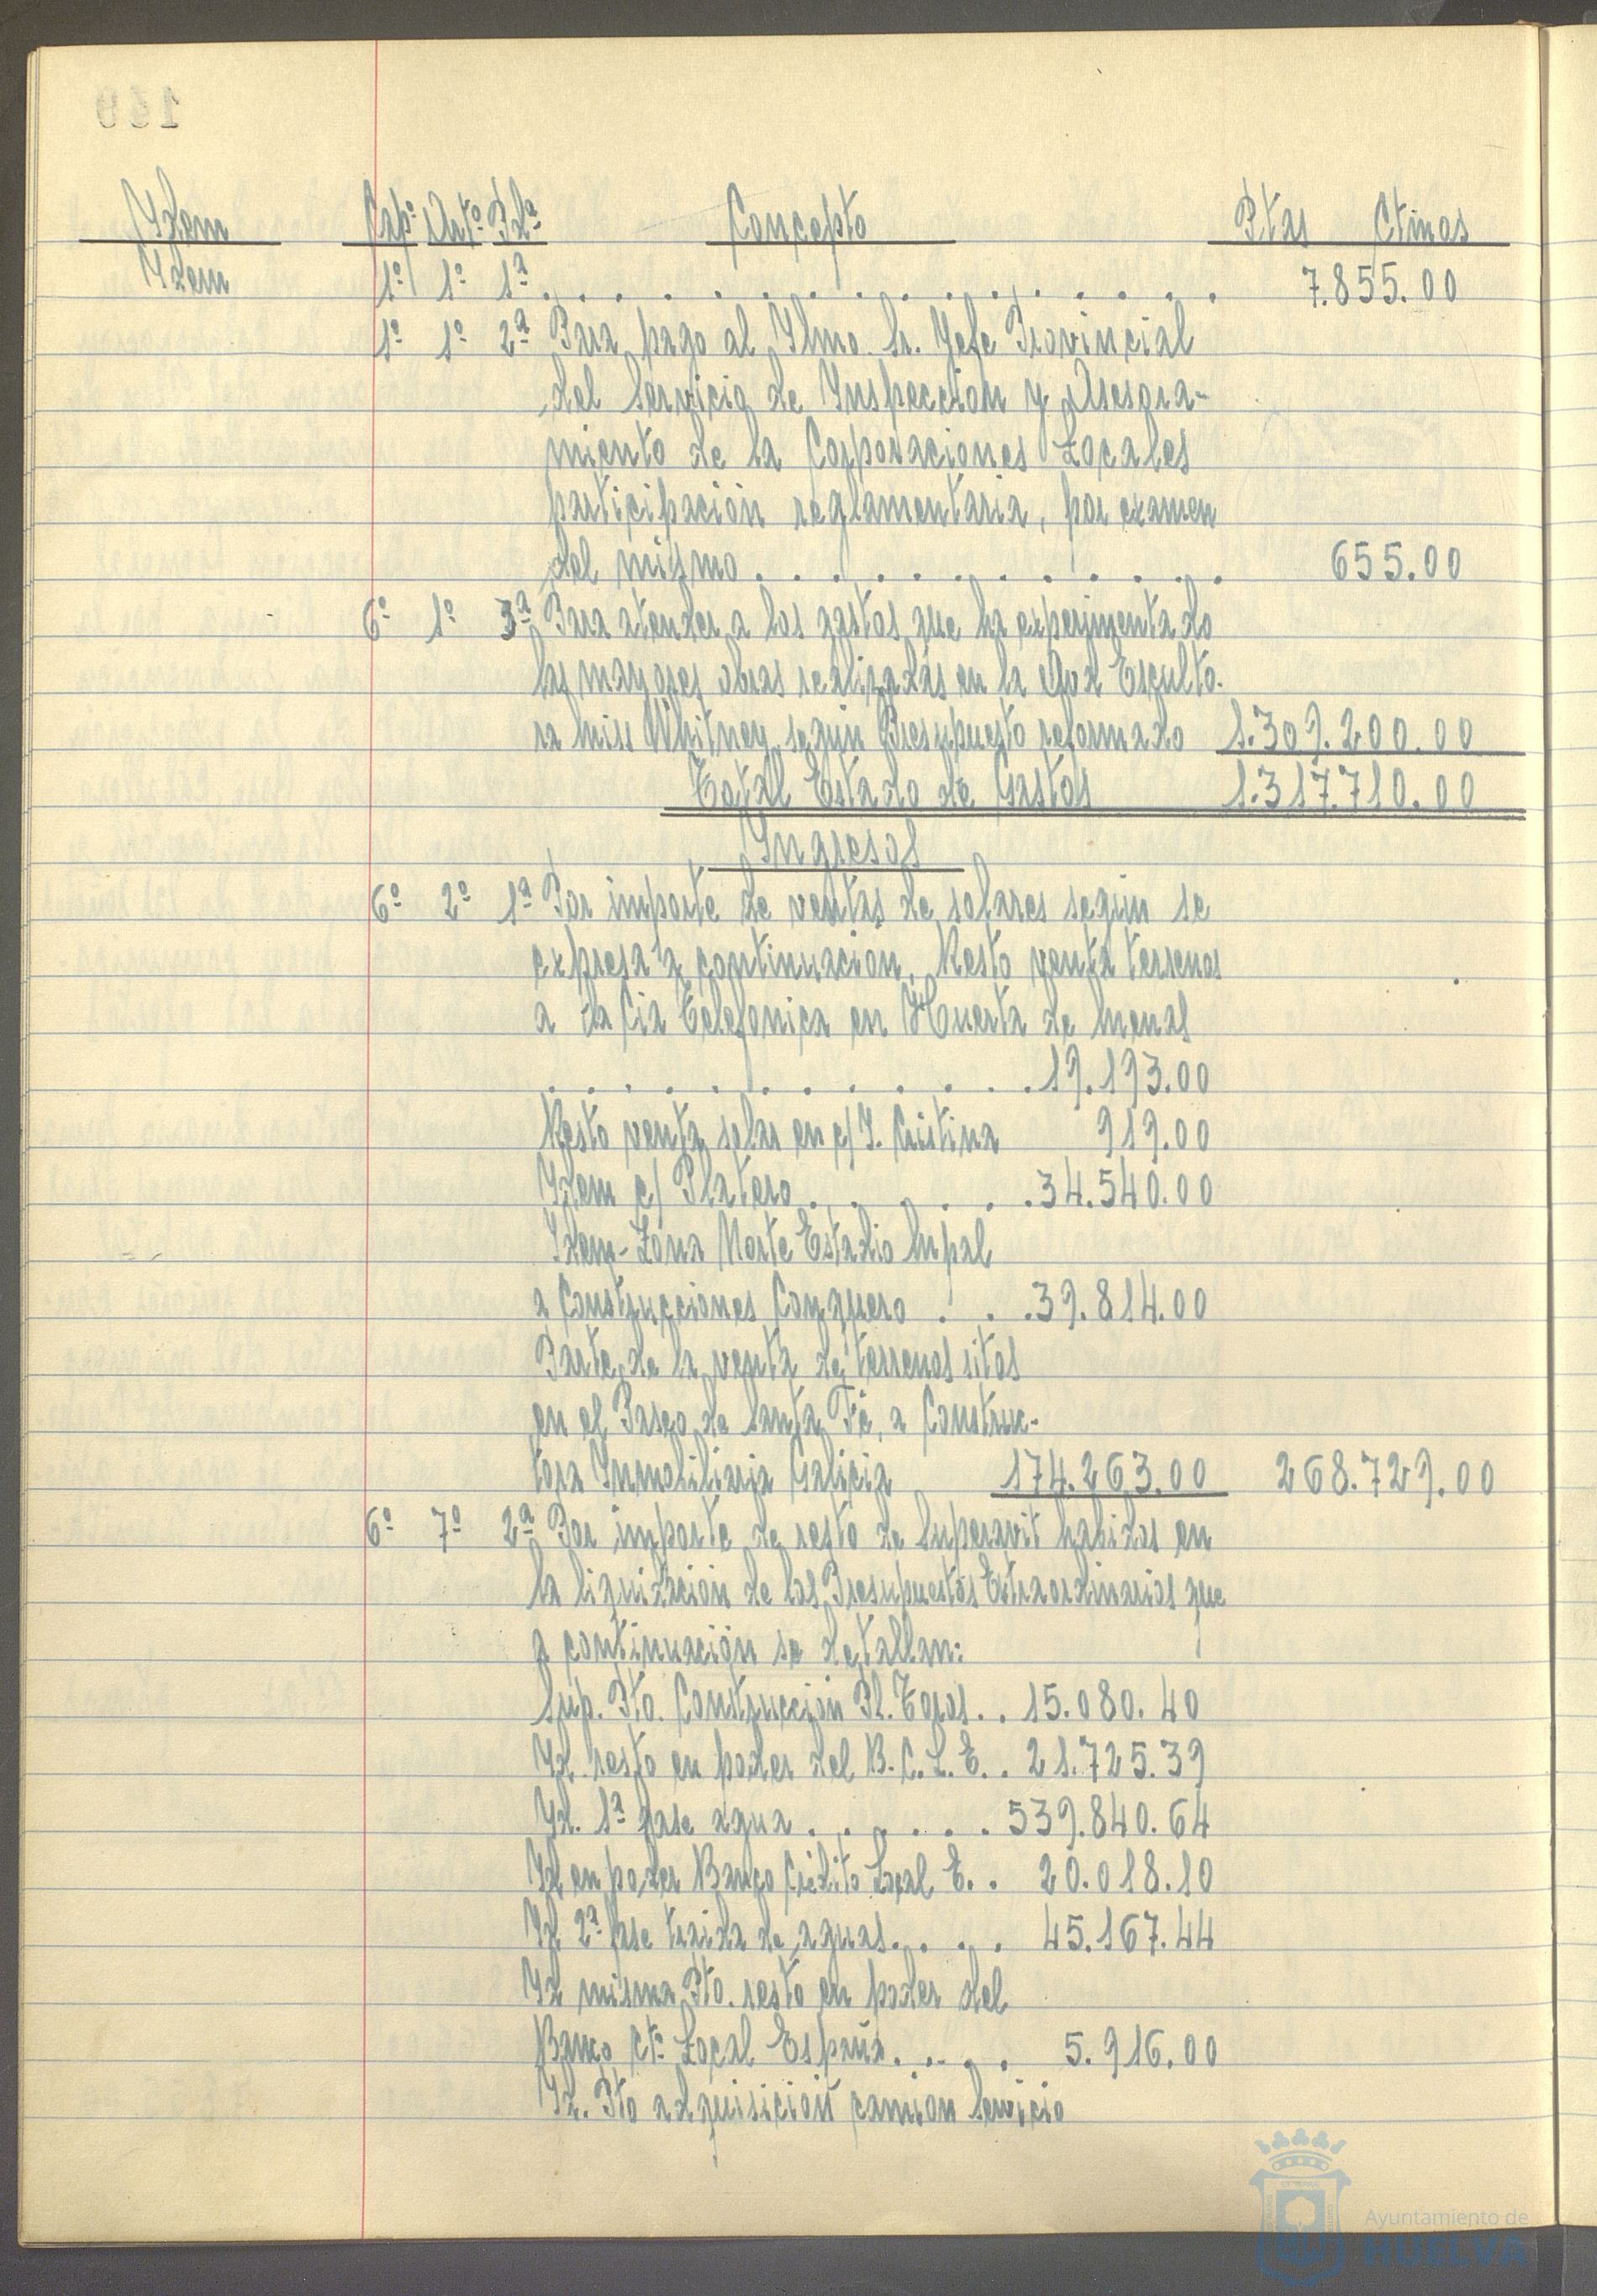 Idem Cap.º Art.º Pda Concepto Ptas Ctmos
Idem 1º 1º 1ª . . . . . . . . . . . . . . . 7.855.00
1º 1º 2ª Para pago al Iltmo. Sr. Jefe Provincial
del Servicio de Inspección y Asesora-
miento de la Corporaciones Locales
participación reglamentaria, por examen
del mismo . . . . . . . . . . . 655.00
6º 1º 3ª Para atender a los gastos que ha experimentado
las mayores obras realizadas en la Avd Esculto-
ra Miss Whitney, según Presupuesto reformado 1.309.200.00
Total Estado de Gastos 1.317.710.00
Ingresos
6º 2º 1ª Por importe de ventas de solares según se
expresa a continuacion, Resto venta terrenos
a la Cia Telefonica en Huerta de Menas
. . . . . . . . . . . . 19.193.00
Resto venta solar en c/ I. Cristina 919.00
Idem c/ Platero . . . . . . 34.540.00
Idem- Zona Norte Estadio Mpal
a Construcciones Conquero . . . 39.814.00
Parte de la venta de terrenos sitos
en el Paseo de Santa Fé, a Construc-
tora Inmobiliaria Galicia 174.263.00 268.729.00
6º 7º 2ª Por importe de resto de Superavit habidos en
la liquidación de los Presupuestos Extraordinarios que
a continuación se detallan:
Sup. Pto. Construccion Pl. Toros . . 15.080.40
Id. resto en poder del B.C.L.E. . 21.725.39
Id. 1ª fase agua . . . . . . 539.840.64
Id en poder Banco Crédito Local E. . 20.018.10
Id 2ª fase traida de aguas . . . . 45.167.44
Id misma Pto. resto en poder del
Banco Ctº Local España . . . . 5.916.00
Id. Pto adquisición camion Servicio
Ayuntamiento de
HUELVA